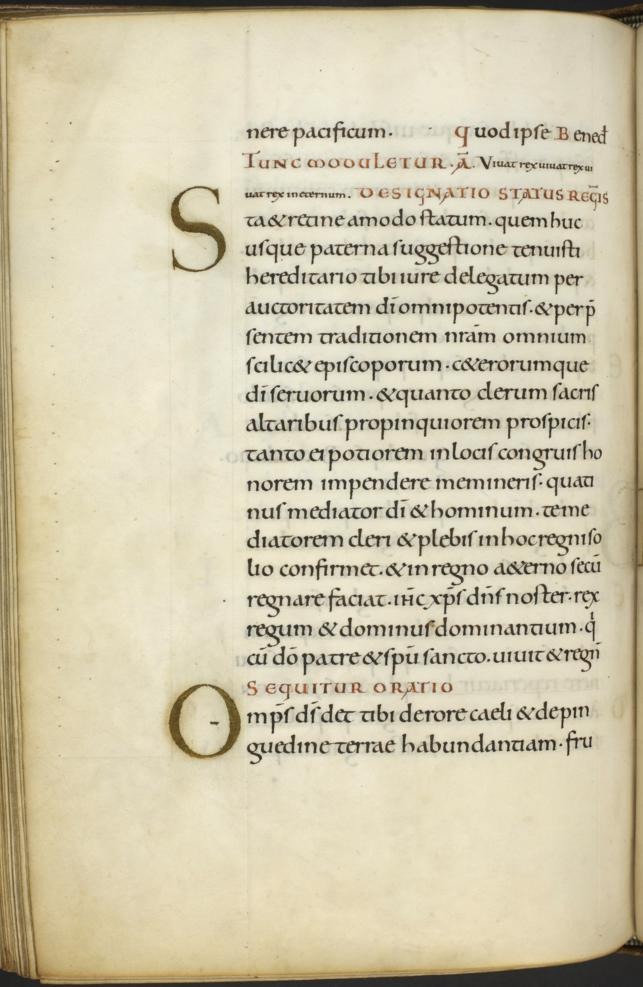 nere pacificum. quod ipse Bened̄
TUNC MODULETUR. Ā. Vivat rex uiuat rex ui
uat rex in eternum. DESIGNATIO STATUS REGIS
Sta & retine amodo statum. quem huc
usque paterna suggestione tenuisti
hereditario tibi iure delegatum per
auctoritatem dī omnipotentis. & per p̄
sentem traditionem nr̄am omnium
scilic& episcoporum. c&erorumque
dī seruorum. & quanto clerum sacris
altaribus propinquiorem prospicis.
tanto ei potiorem in locis congruis ho
norem impendere memineris. quati
nus mediator dī & hominum. te me
diatorem cleri & plebis in hoc regni so
lio confirmet. & in regno a&erno secū
regnare faciat. ih̄c xp̄s dn̄s noster. rex
regum & dominus dominantium. q̇
cū dō patre & sp̄u sancto. uiuit & regn̄
SEQUITUR ORATIO
Omp̄s ds̄ det tibi de rore caeli & de pin
guedine terrae habundantiam. fru